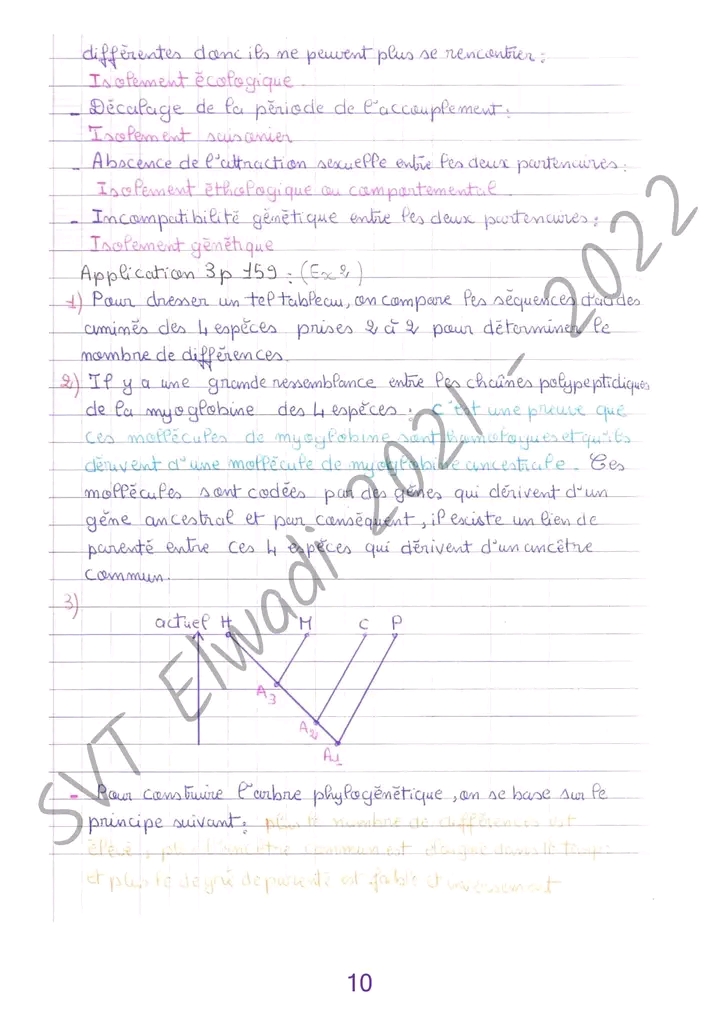 différentes donc ils ne peuvent plus se rencontrer :
Isolement écologique
- Décalage de la période de l'accouplement :
Isolement saisonier
- Abscence de l'attraction sexuelle entre les deux partenaires :
Isolement éthologique ou comportemental
- Incompatibilité génétique entre les deux partenaires :
Isolement génétique
Application 3 p 159 : (Ex 2)
1) Pour dresser un tel tableau, on compare les séquences d'acides
aminés des 4 espèces prises 2 à 2 pour déterminer le
nombre de différences.
2) Il y a une grande ressemblance entre les chaînes polypeptidiques
de la myoglobine des 4 espèces : c'est une preuve que
ces mollécules de myoglobine sont homologues et qu'ils
dérivent d'une mollécule de myoglobine ancestrale. Ces
mollécules sont codées par des gènes qui dérivent d'un
gène ancestral et par conséquent, il existe un lien de
parenté entre ces 4 espèces qui dérivent d'un ancêtre
commun.
3)
actuel H M C P
A3
A2
A1
- Pour construire l'arbre phylogénétique, on se base sur le
principe suivant : plus le nombre de différences est
élevé, plus l'ancêtre commun est éloigné dans le temps
et plus le degré de parenté est faible et inversement
SVT Elwadi 2021 - 2022
10